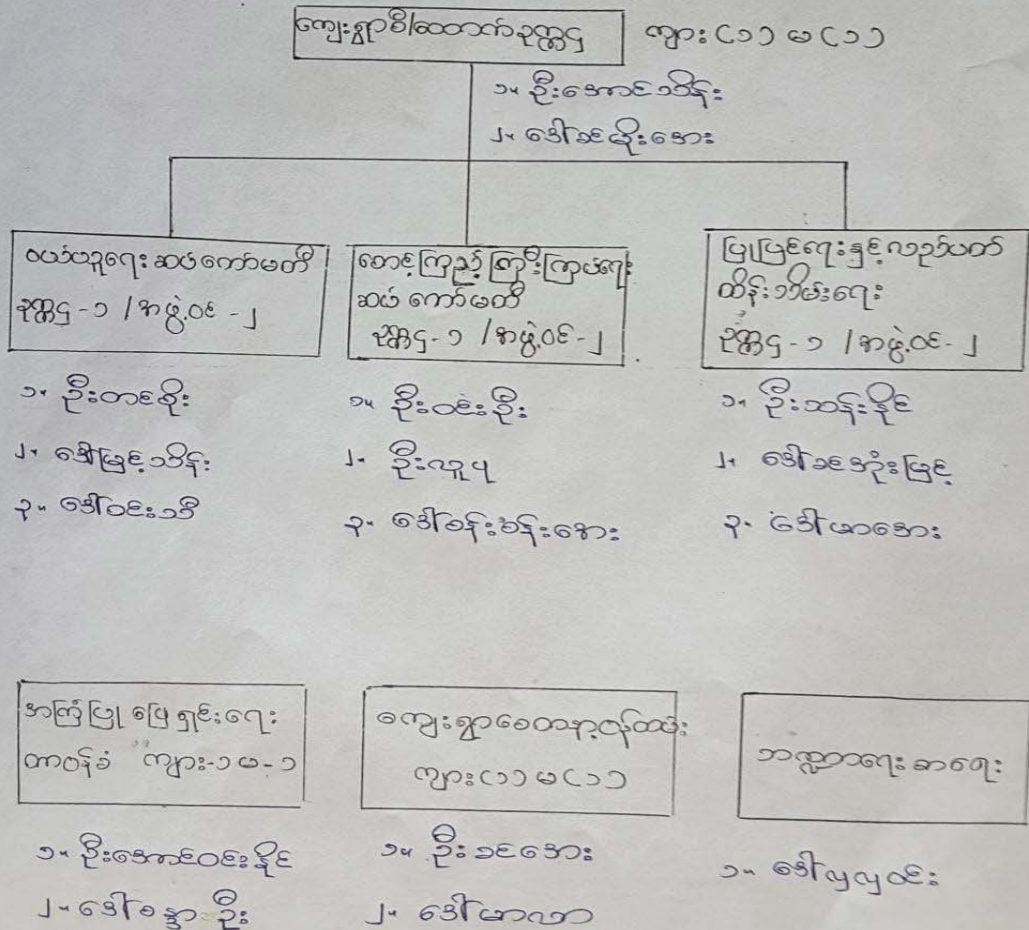 ကျေးရွာစီ/ထောက်ဥက္ကဌ
ကျား(၁) မ(၁)
၁။ ဦးအောင်သိန်း
၂။ ဒေါ်ခင်မိုးအေး
ဝယ်ယူရေးဆပ်ကော်မတီ
ဥက္ကဌ-၁ / အဖွဲ့ဝင်-၂
၁။ ဦးတင်စိုး
၂။ ဒေါ်မြင့်သိန်း
၃။ ဒေါ်ဝင်းသီ
စောင့်ကြည့်ကြီးကြပ်ရေး
ဆပ်ကော်မတီ
ဥက္ကဌ-၁ / အဖွဲ့ဝင်-၂
၁။ ဦးဝင်းဦး
၂။ ဦးလူပု
၃။ ဒေါ်စန်းစန်းအေး
ပြုပြင်ရေးနှင့်လည်ပတ်
ထိန်းသိမ်းရေး
ဥက္ကဌ-၁ / အဖွဲ့ဝင်-၂
၁။ ဦးသန်းနိုင်
၂။ ဒေါ်ခင်အုံးမြင့်
၃။ ဒေါ်မာအေး
အကြံပြုဖြေရှင်းရေး
တာဝန်ခံ ကျား-၁ မ-၁
၁။ ဦးအောင်ဝင်းနိုင်
၂။ ဒေါ်စန္ဒာဦး
ကျေးရွာစေတနာ့ဝန်ထမ်း
ကျား(၁) မ(၁)
၁။ ဦးခင်အေး
၂။ ဒေါ်မာလာ
ဘဏ္ဍာရေးစာရေး
၁။ ဒေါ်လှလှဝင်း